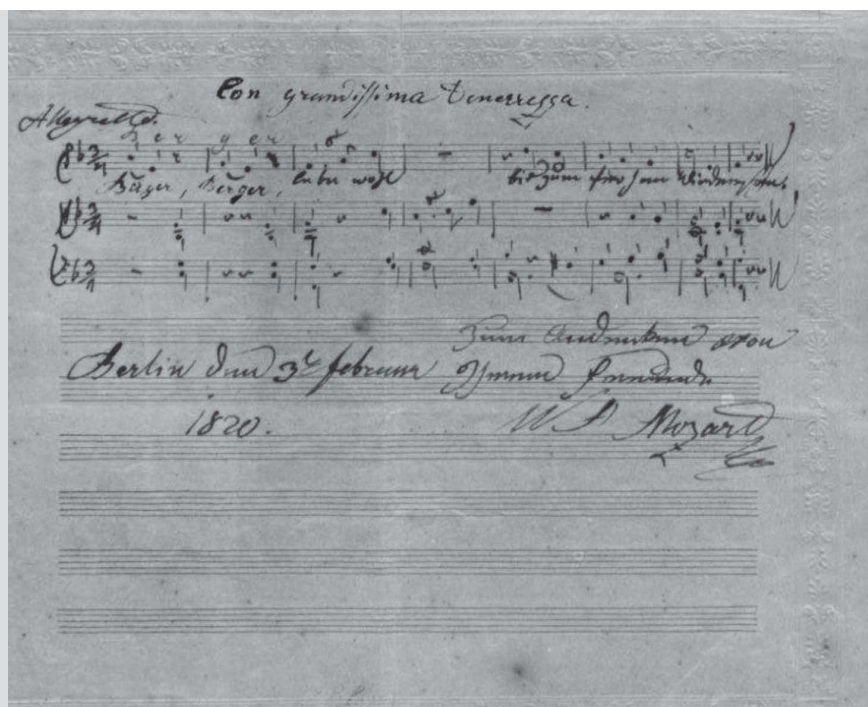 Con grandissima tenerezza.
Allegretto.
B e r g e r
Berger, Berger, lebe wohl bis zum frohen Wiedersehn.
Zum Andenken von
Berlin den 3t februar Ihrem Freunde
1820. W A Mozart